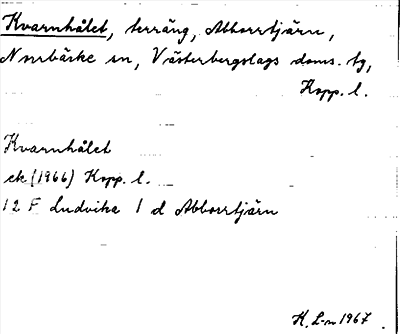 Kvarnhålet, terräng, Abborrtjärn,
Norrbärke sn, Västerbergslags doms. tg,
Kopp. l.
Kvarnhålet
ek (1966) Kopp. l.
12 F Ludvika 1 d Abborrtjärn
K. L-n 1967